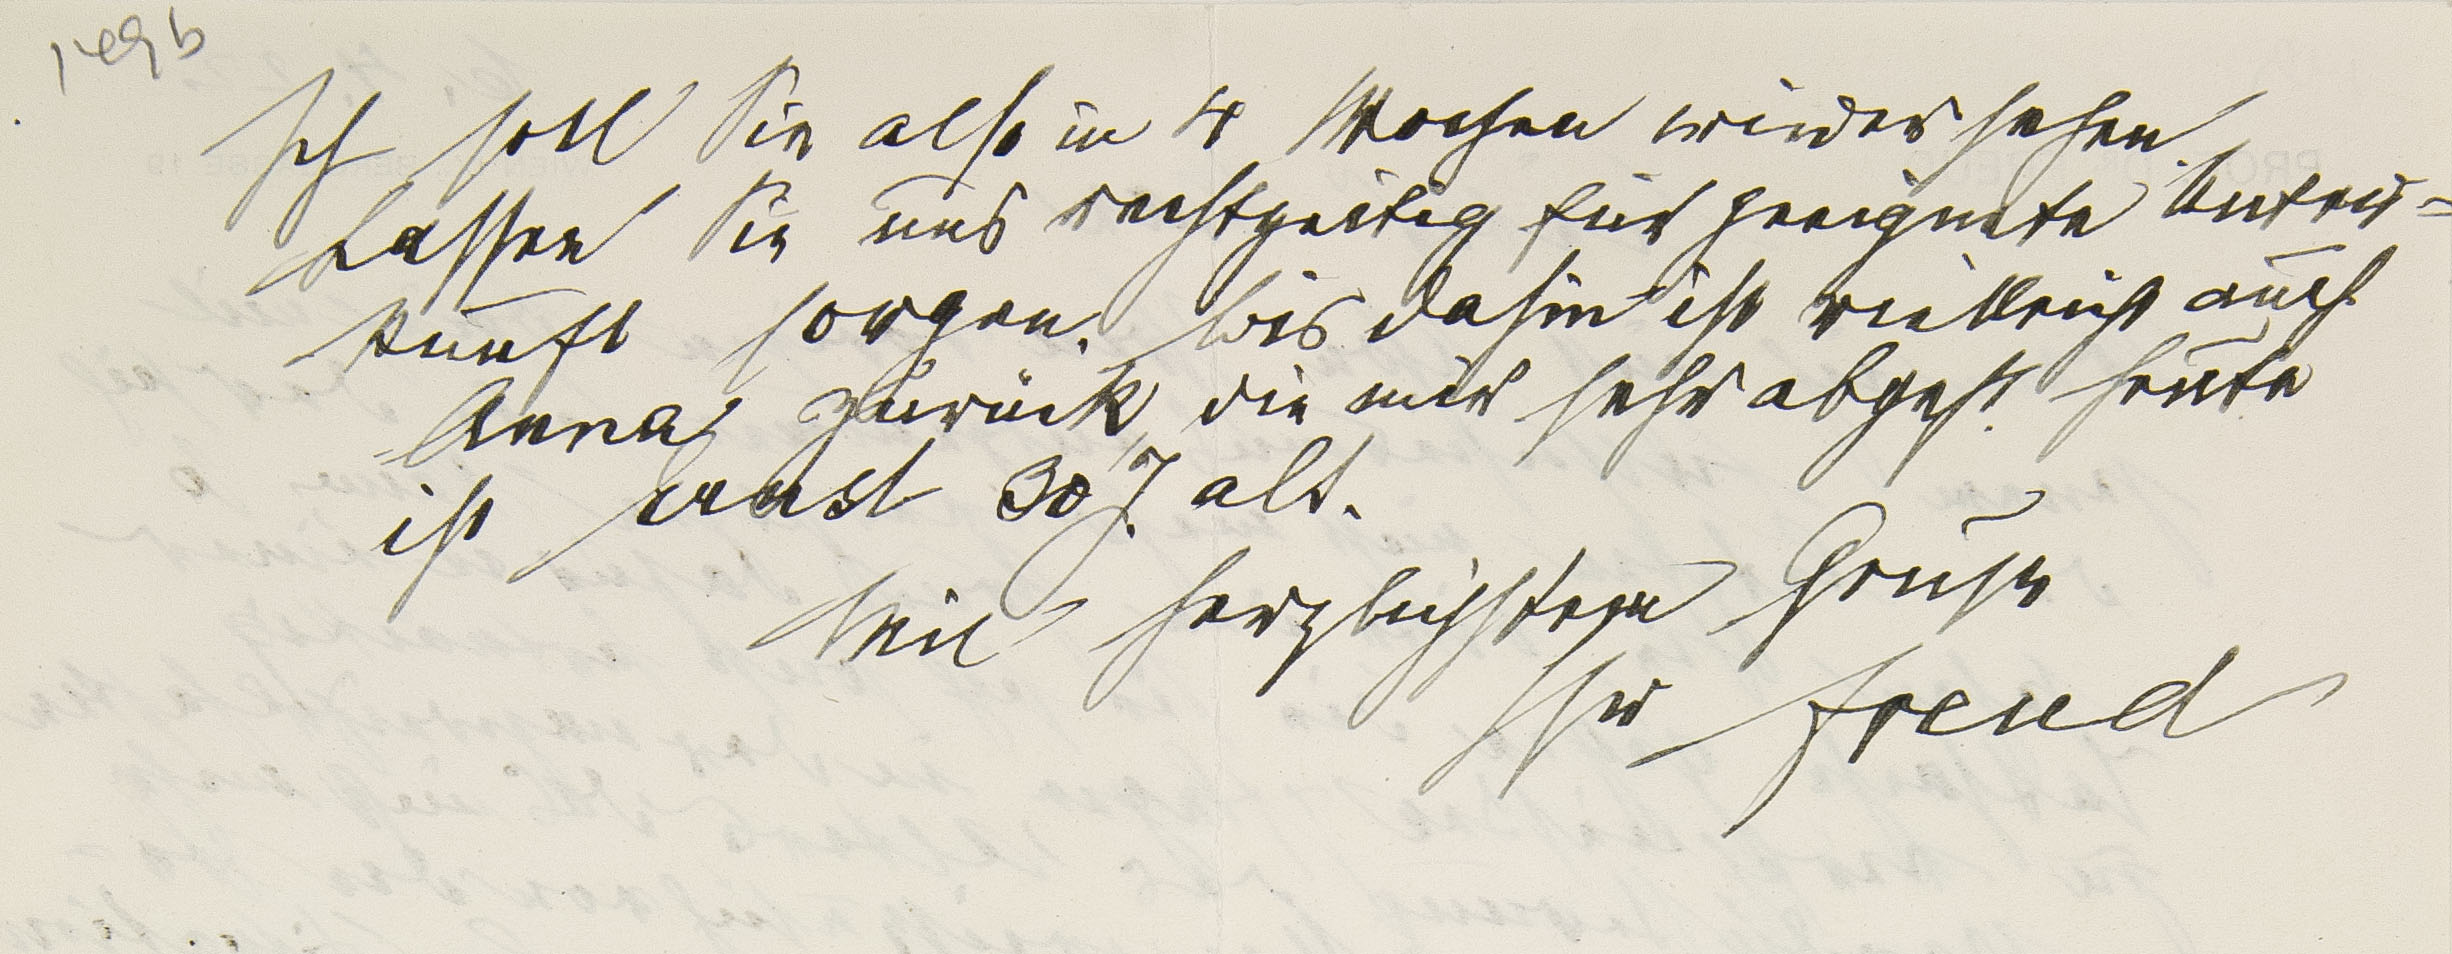 149b
Ich soll Sie also in 4 Wochen wieder sehen.
Lassen Sie uns rechtzeitig für geeignete Unter=
kunft sorgen. Bis dahin ist vielleicht auch
Anna zurück, die mir sehr abgeht. Heute
ist Ernst 30 J. alt.
Mit herzlichstem Gruß
Ihr Freud